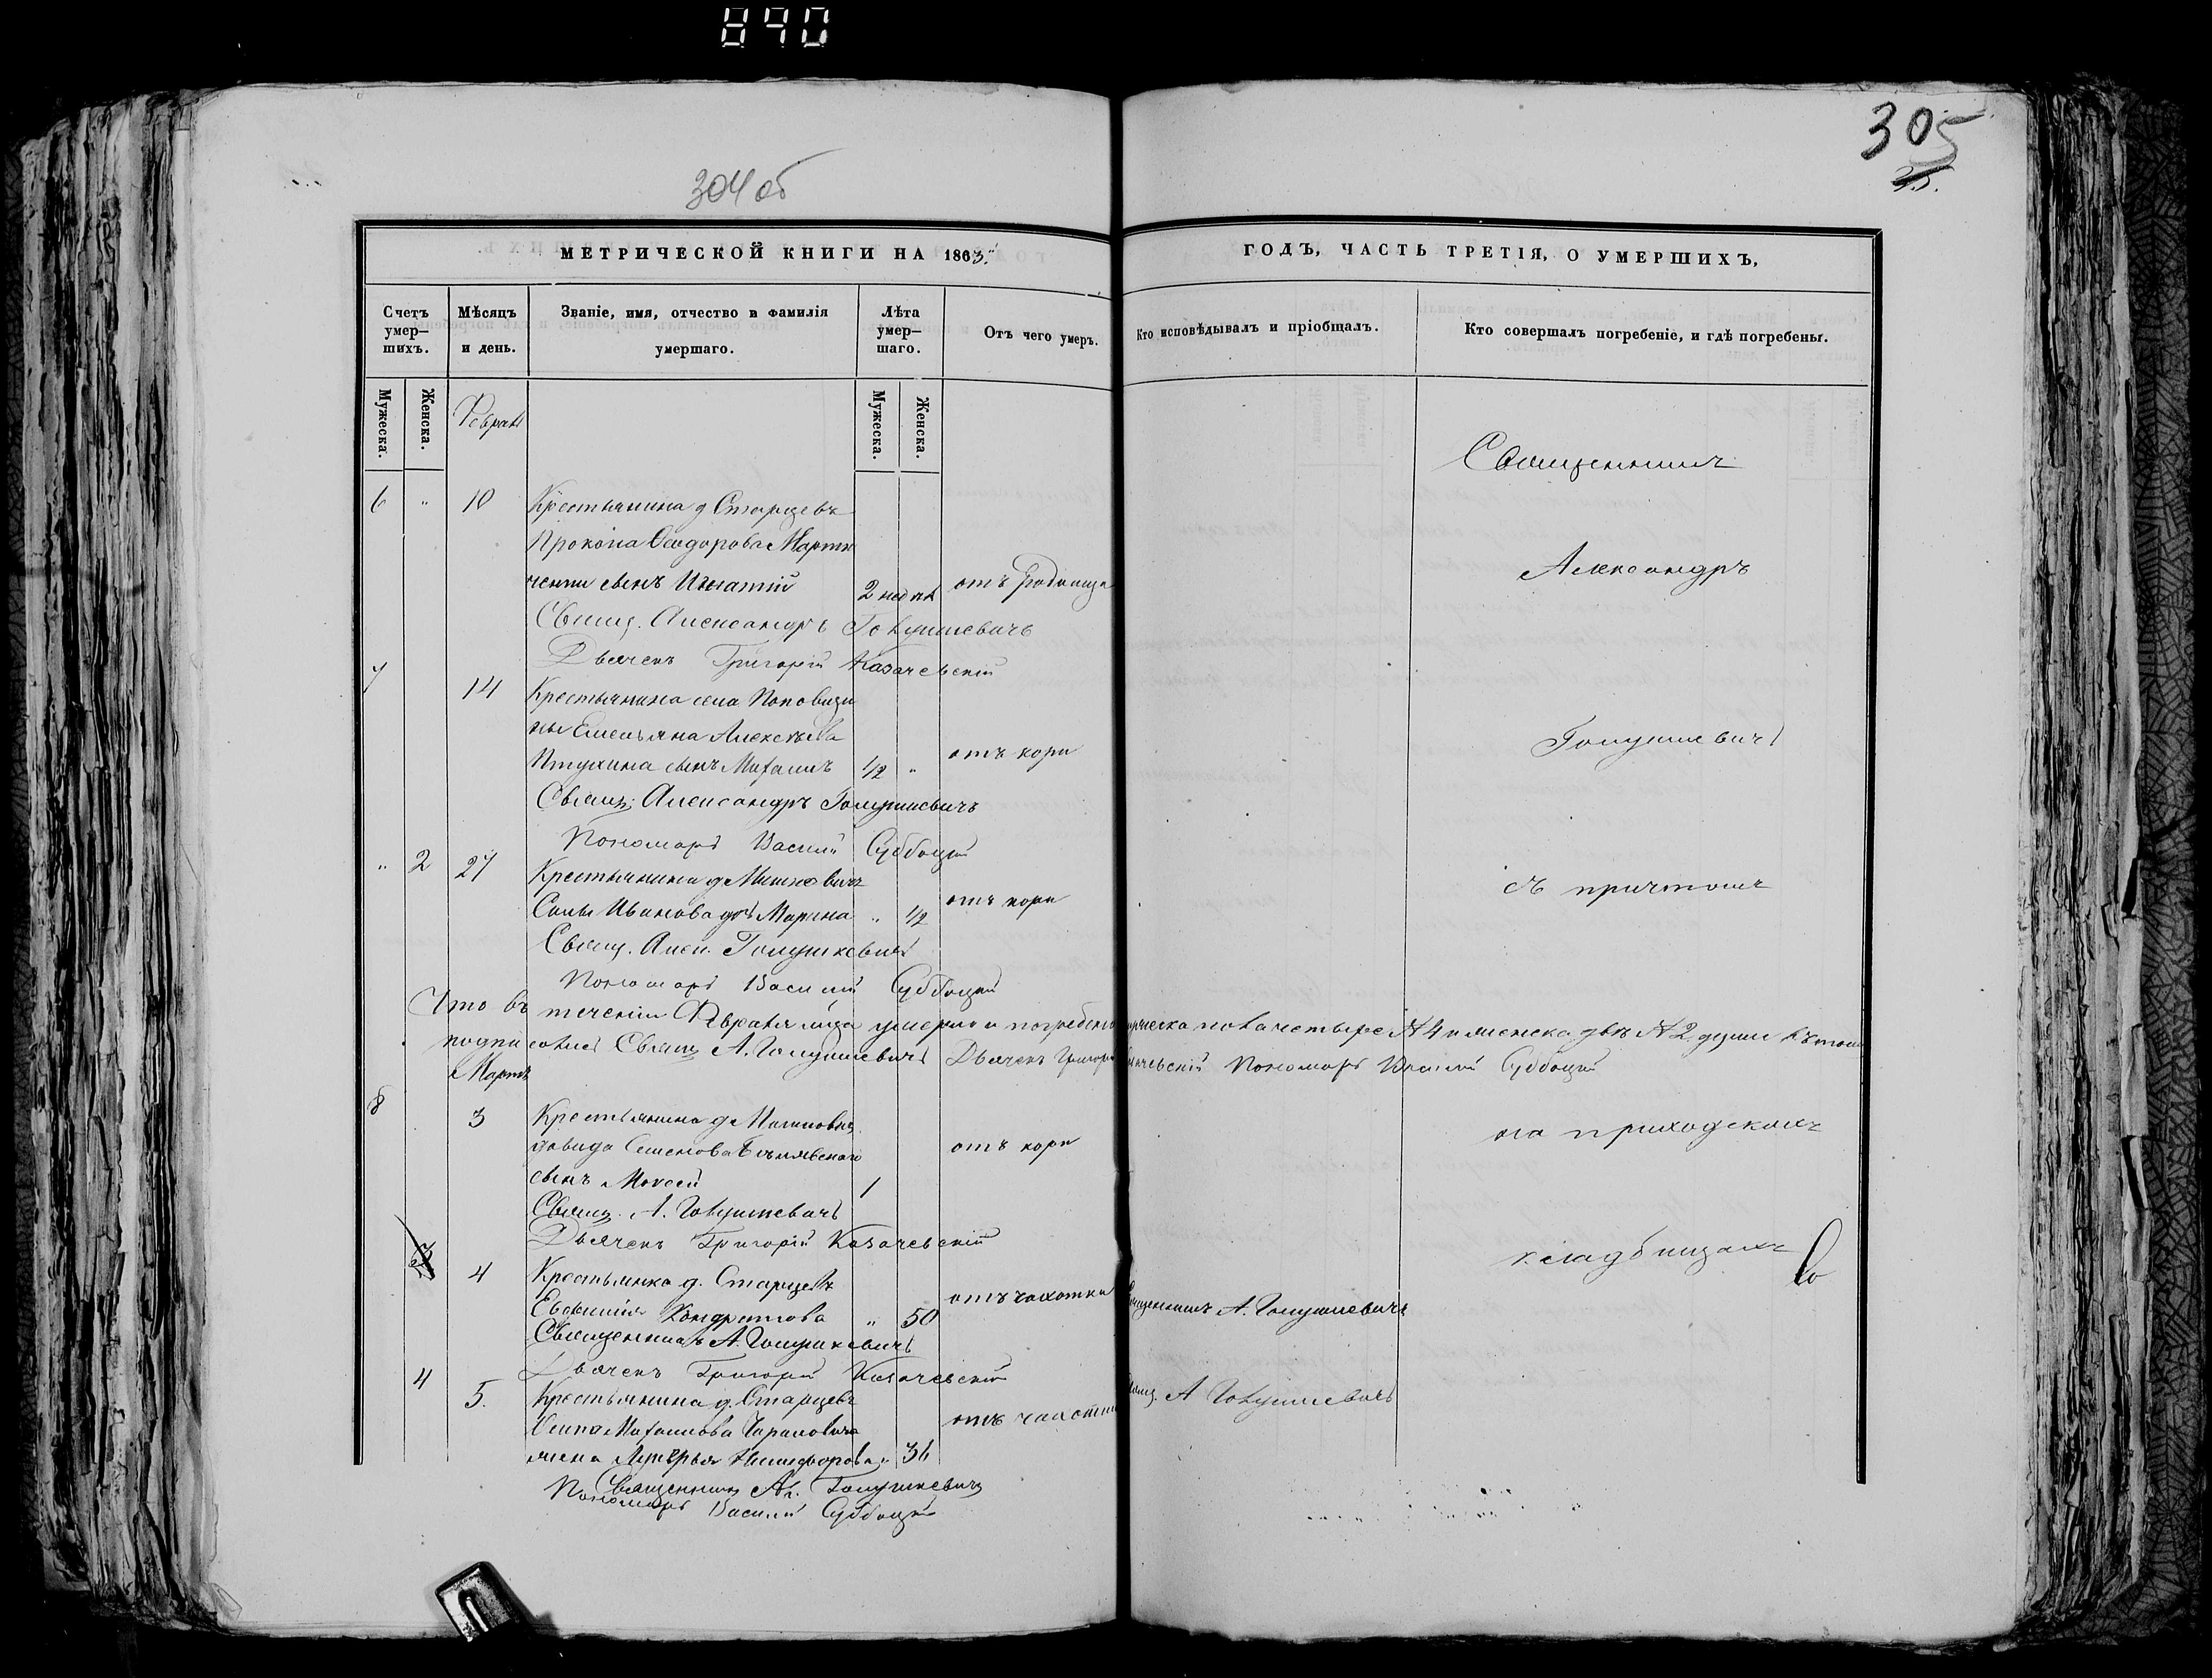 890
305
304 об
МЕТРИЧЕСКОЙ КНИГИ НА 1863.
ГОДЪ, ЧАСТЬ ТРЕТІЯ, О УМЕРШИХЪ,
Счетъ умер-шихъ.
Мѣсяцъ и день.
Званіе, имя, отчество и фамилія умершаго.
Лѣта умер-шаго.
Отъ чего умеръ.
Кто исповѣдывалъ и пріобщалъ.
Кто совершалъ погребеніе, и гдѣ погребены.
Мужеска.
Женска.
Мужеска.
Женска.
Февраль
Священникъ
6 " 10 Крестьянина д Старцевъ
Прокопа Ѳеодорова Марти
сынъ Игнатій 2 недѣл отъ родимца
Александръ
Свящ. Александръ Голушкевичъ
Дьячекъ Григорій Казачевскій
7 14 Крестьянина села Поповщи
ны Емельяна Алексѣева
Птухина сынъ Михаилъ 1/2 " отъ кори
Голушкевичъ
Свящ. Александръ Голушкевичъ
Пономарь Василій Субботцкій
" 2 27 Крестьянина д
Силы Иванова дочь Марина " 1/2 отъ кори
съ причтомъ
Свящ. Алек. Голушкевичъ
Пономарь Василій
Что въ теченіи Февраля м-ца умерло и погребено мужеска пола четыре № 4 и женска двѣ № 2 души въ томъ
подписались Свящ А. Голушкевичъ Дьячекъ Григорій Казачевскій Пономарь Василій
Мартъ
8 3 Крестьянина д
Давида Семенова отъ кори
на приходскомъ
сынъ Моисей 1
Свящ. А. Голушкевичъ
Дьячекъ Григорій Казачевскій
3 4 Крестьянка д. Старцевъ
кладбищахъ
Евфимія Кондратова " 50 отъ чахотки Священникъ А. Голушкевичъ
Священникъ А. Голушкевичъ
Дьячекъ Григорій Казачевскій
4 5. Крестьянина д. Старцевъ
Осипа Михайлова отъ чахотки Свящ. А Голушкевичъ
жена Лукерья Никифорова " 36
Священникъ Ал. Голушкевичъ
Пономарь Василій